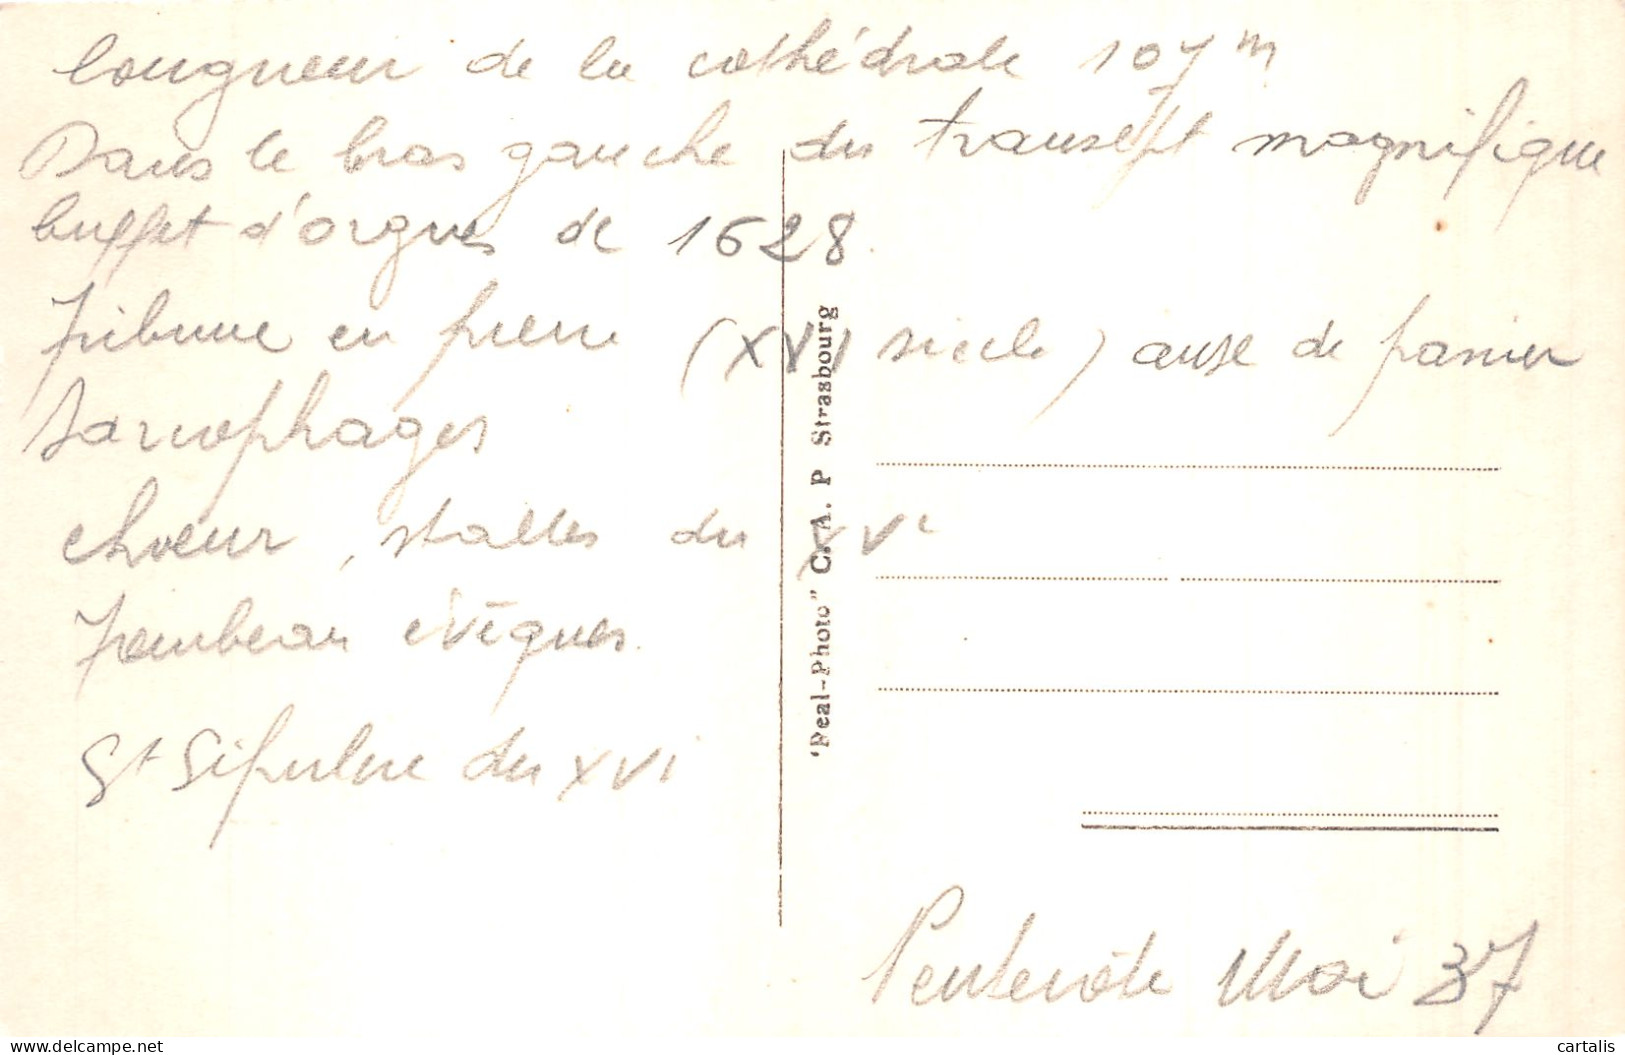 longueur de la cathédrale 107 m
Dans le bras gauche du transept magnifique
buffet d'orgues de 1628
Tribune en pierre (XVI siècle) anse de panier
Sarcophages
choeur, stalles du XVe
Tombeau évêques.
St Sépulcre du XVI
"Real-Photo" C. A. P Strasbourg
Pentecôte Mai 37
cartalis